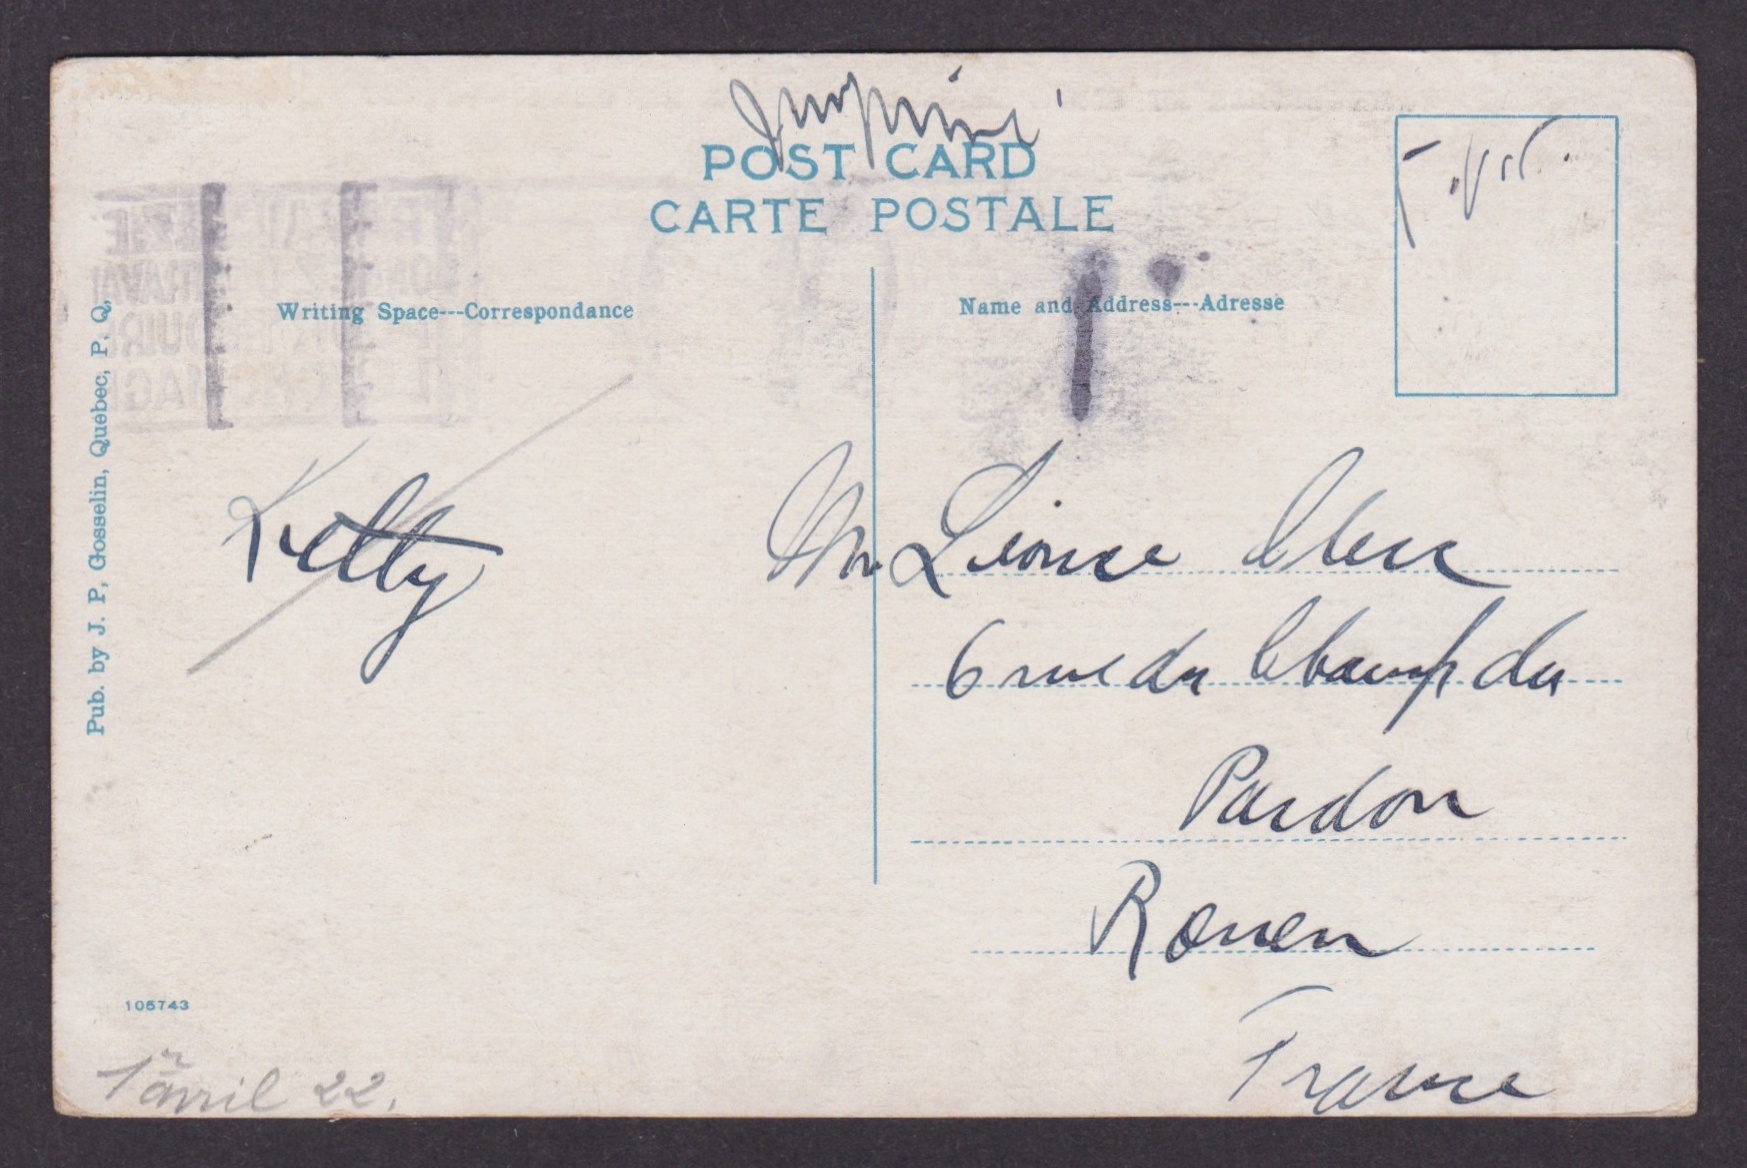 Imprimé
POST CARD
CARTE POSTALE
Writing Space---Correspondance
Name and Address---Adresse
Pub. by J. P. Gosselin, Quebec, P. Q.
Ketty
Mr Léonce Clerc
6 rue du Champ du
Pardon
Rouen
France
105743
1er avril 22.